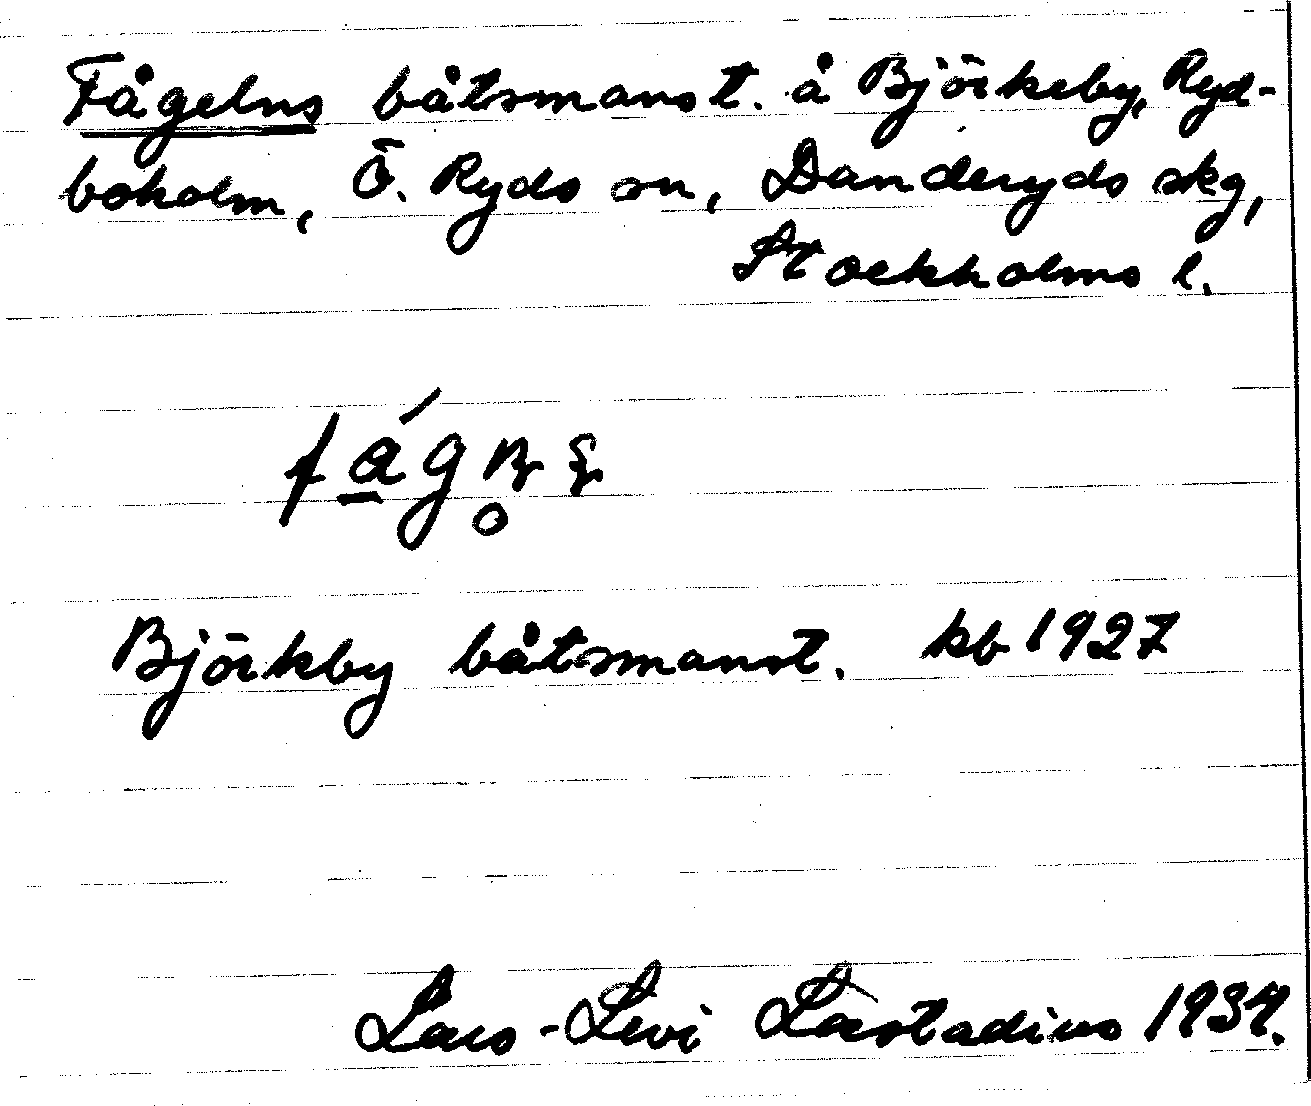 Fågelns båtsmanst. å Björkeby, Ryd-
boholm, Ö. Ryds sn, Danderyds skg,
Stockholms l.
Björkby båtsmanst. kb 1927
Lars-Levi Læstadius 1934.